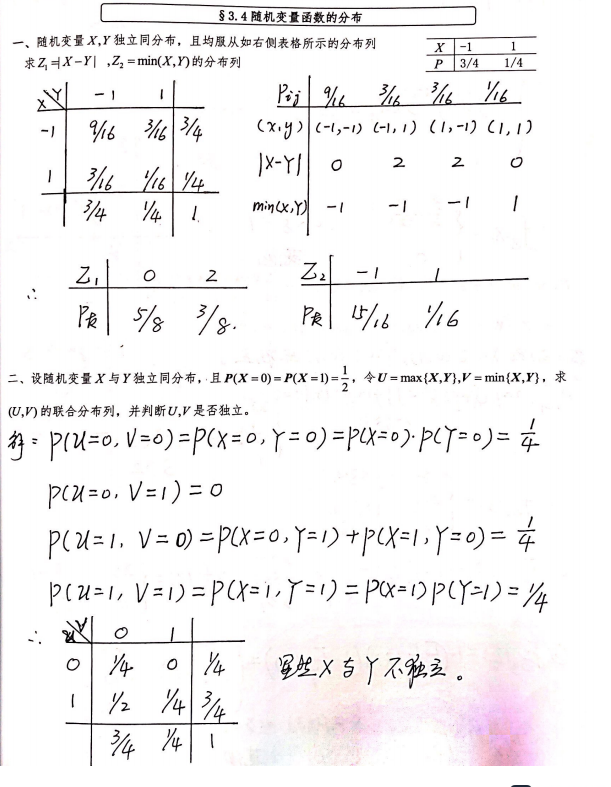 §3.4 随机变量函数的分布
一、随机变量 X,Y 独立同分布，且均服从如右侧表格所示的分布列
X -1 1
求 Z₁=|X−Y| ,Z₂ = min(X,Y)的分布列
P 3/4 1/4
X Y -1 1
-1 9/16 3/16 3/4
1 3/16 1/16 1/4
3/4 1/4 1
Pij 9/16 3/16 3/16 1/16
(x,y) (-1,-1) (-1,1) (1,-1) (1,1)
|X-Y| 0 2 2 0
min(x,Y) -1 -1 -1 1
∴ Z₁ 0 2
Pk 5/8 3/8.
Z₂ -1 1
Pk 15/16 1/16
二、设随机变量 X 与 Y 独立同分布，且 P(X=0)=P(X=1)=1/2，令 U=max{X,Y},V=min{X,Y}，求
(U,V) 的联合分布列，并判断 U,V 是否独立。
解：P(U=0, V=0)=P(X=0, Y=0)=P(X=0)·P(Y=0)= 1/4
P(U=0, V=1)=0
P(U=1, V=0)=P(X=0, Y=1)+P(X=1, Y=0)= 1/4
P(U=1, V=1)=P(X=1, Y=1)=P(X=1)P(Y=1)=1/4
∴ U V 0 1
0 1/4 0 1/4
1 1/2 1/4 3/4
3/4 1/4 1
显然 X 与 Y 不独立。